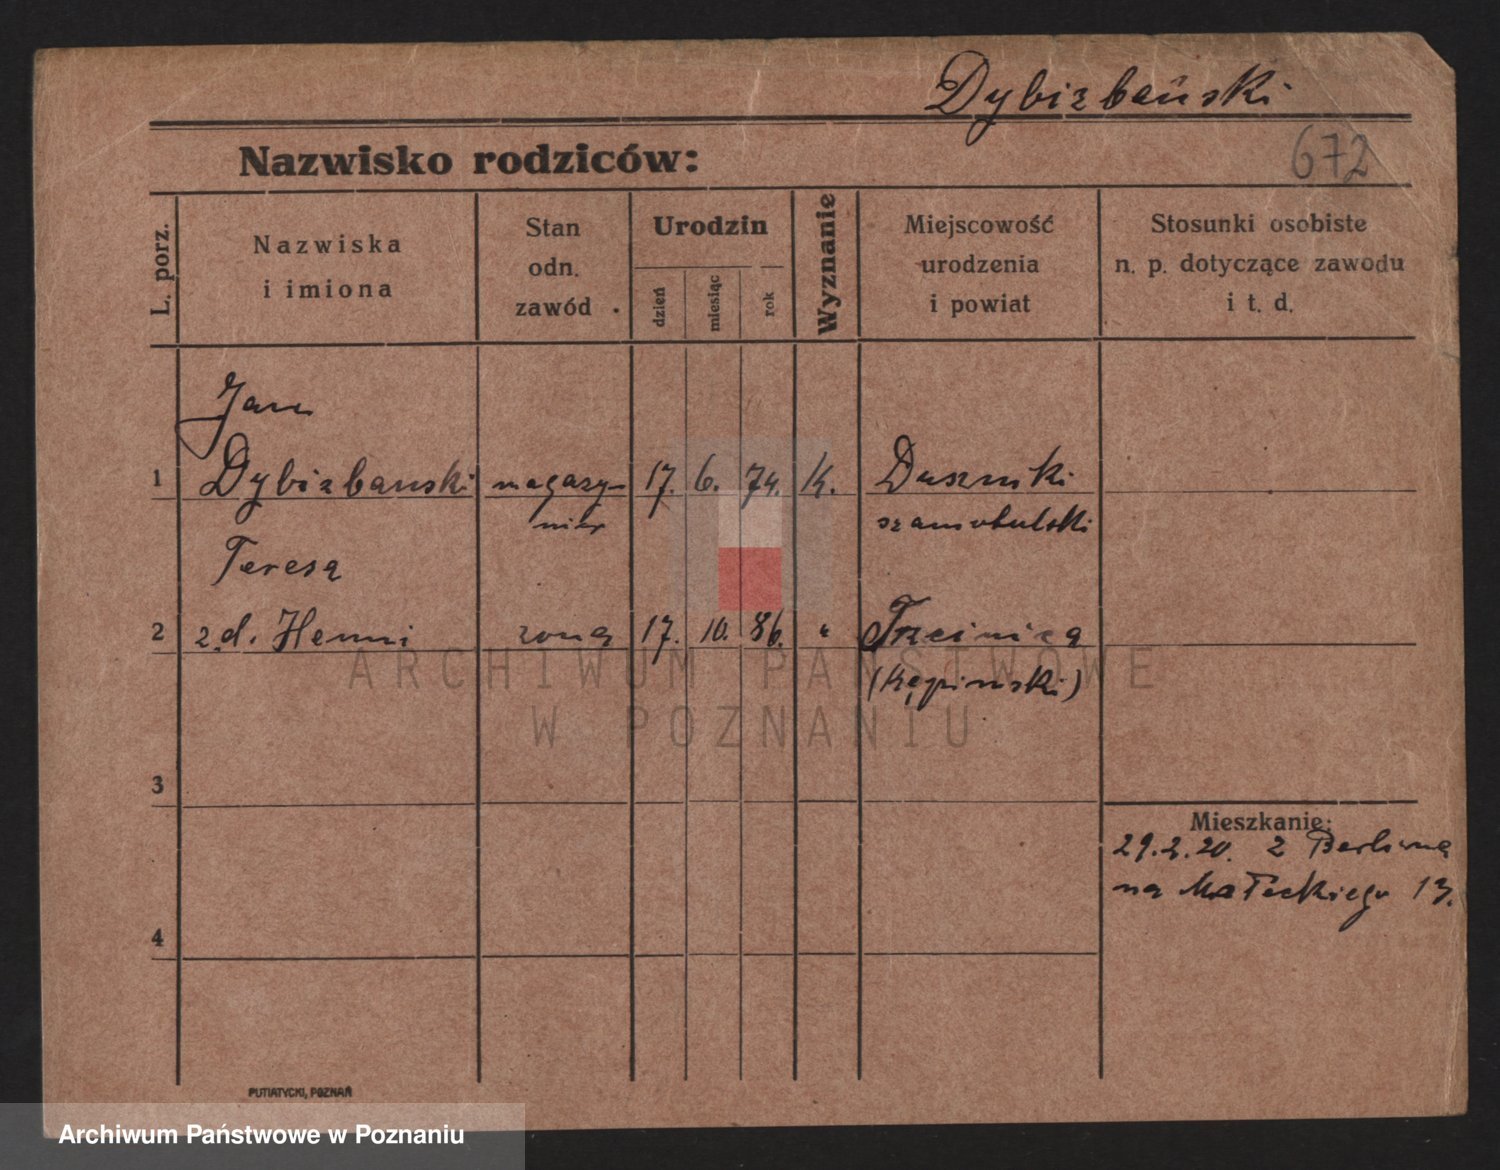 Dybizbański
672
Nazwisko rodziców:
L. porz.
Nazwiska
i imiona
Stan
odn.
zawód
Urodzin
dzień
miesiąc
rok
Wyznanie
Miejscowość
urodzenia
i powiat
Stosunki osobiste
n. p. dotyczące zawodu
i t. d.
Jan
1 Dybizbanski magazy- 17. 6. 74. K. Duszniki
nier szamotulski
Teresa
2 z.d. Henni żona 17. 10. 86. " Trzcinica
(Kępinski)
3
Mieszkanie:
29.2.20. z Berlina
na Małeckiego 13.
4
PUTIATYCKI, POZNAŃ
ARCHIWUM PAŃSTWOWE
W POZNANIU
Archiwum Państwowe w Poznaniu